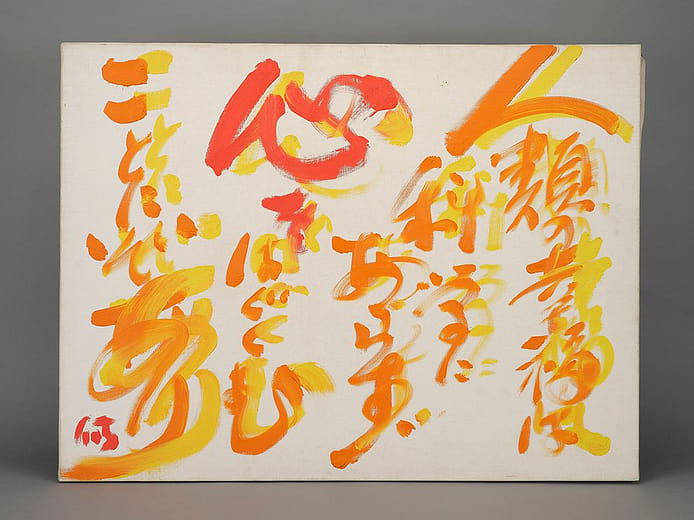 人類の幸福は
科学に
あらず
心をはぐくむ
ことにこそ
あり